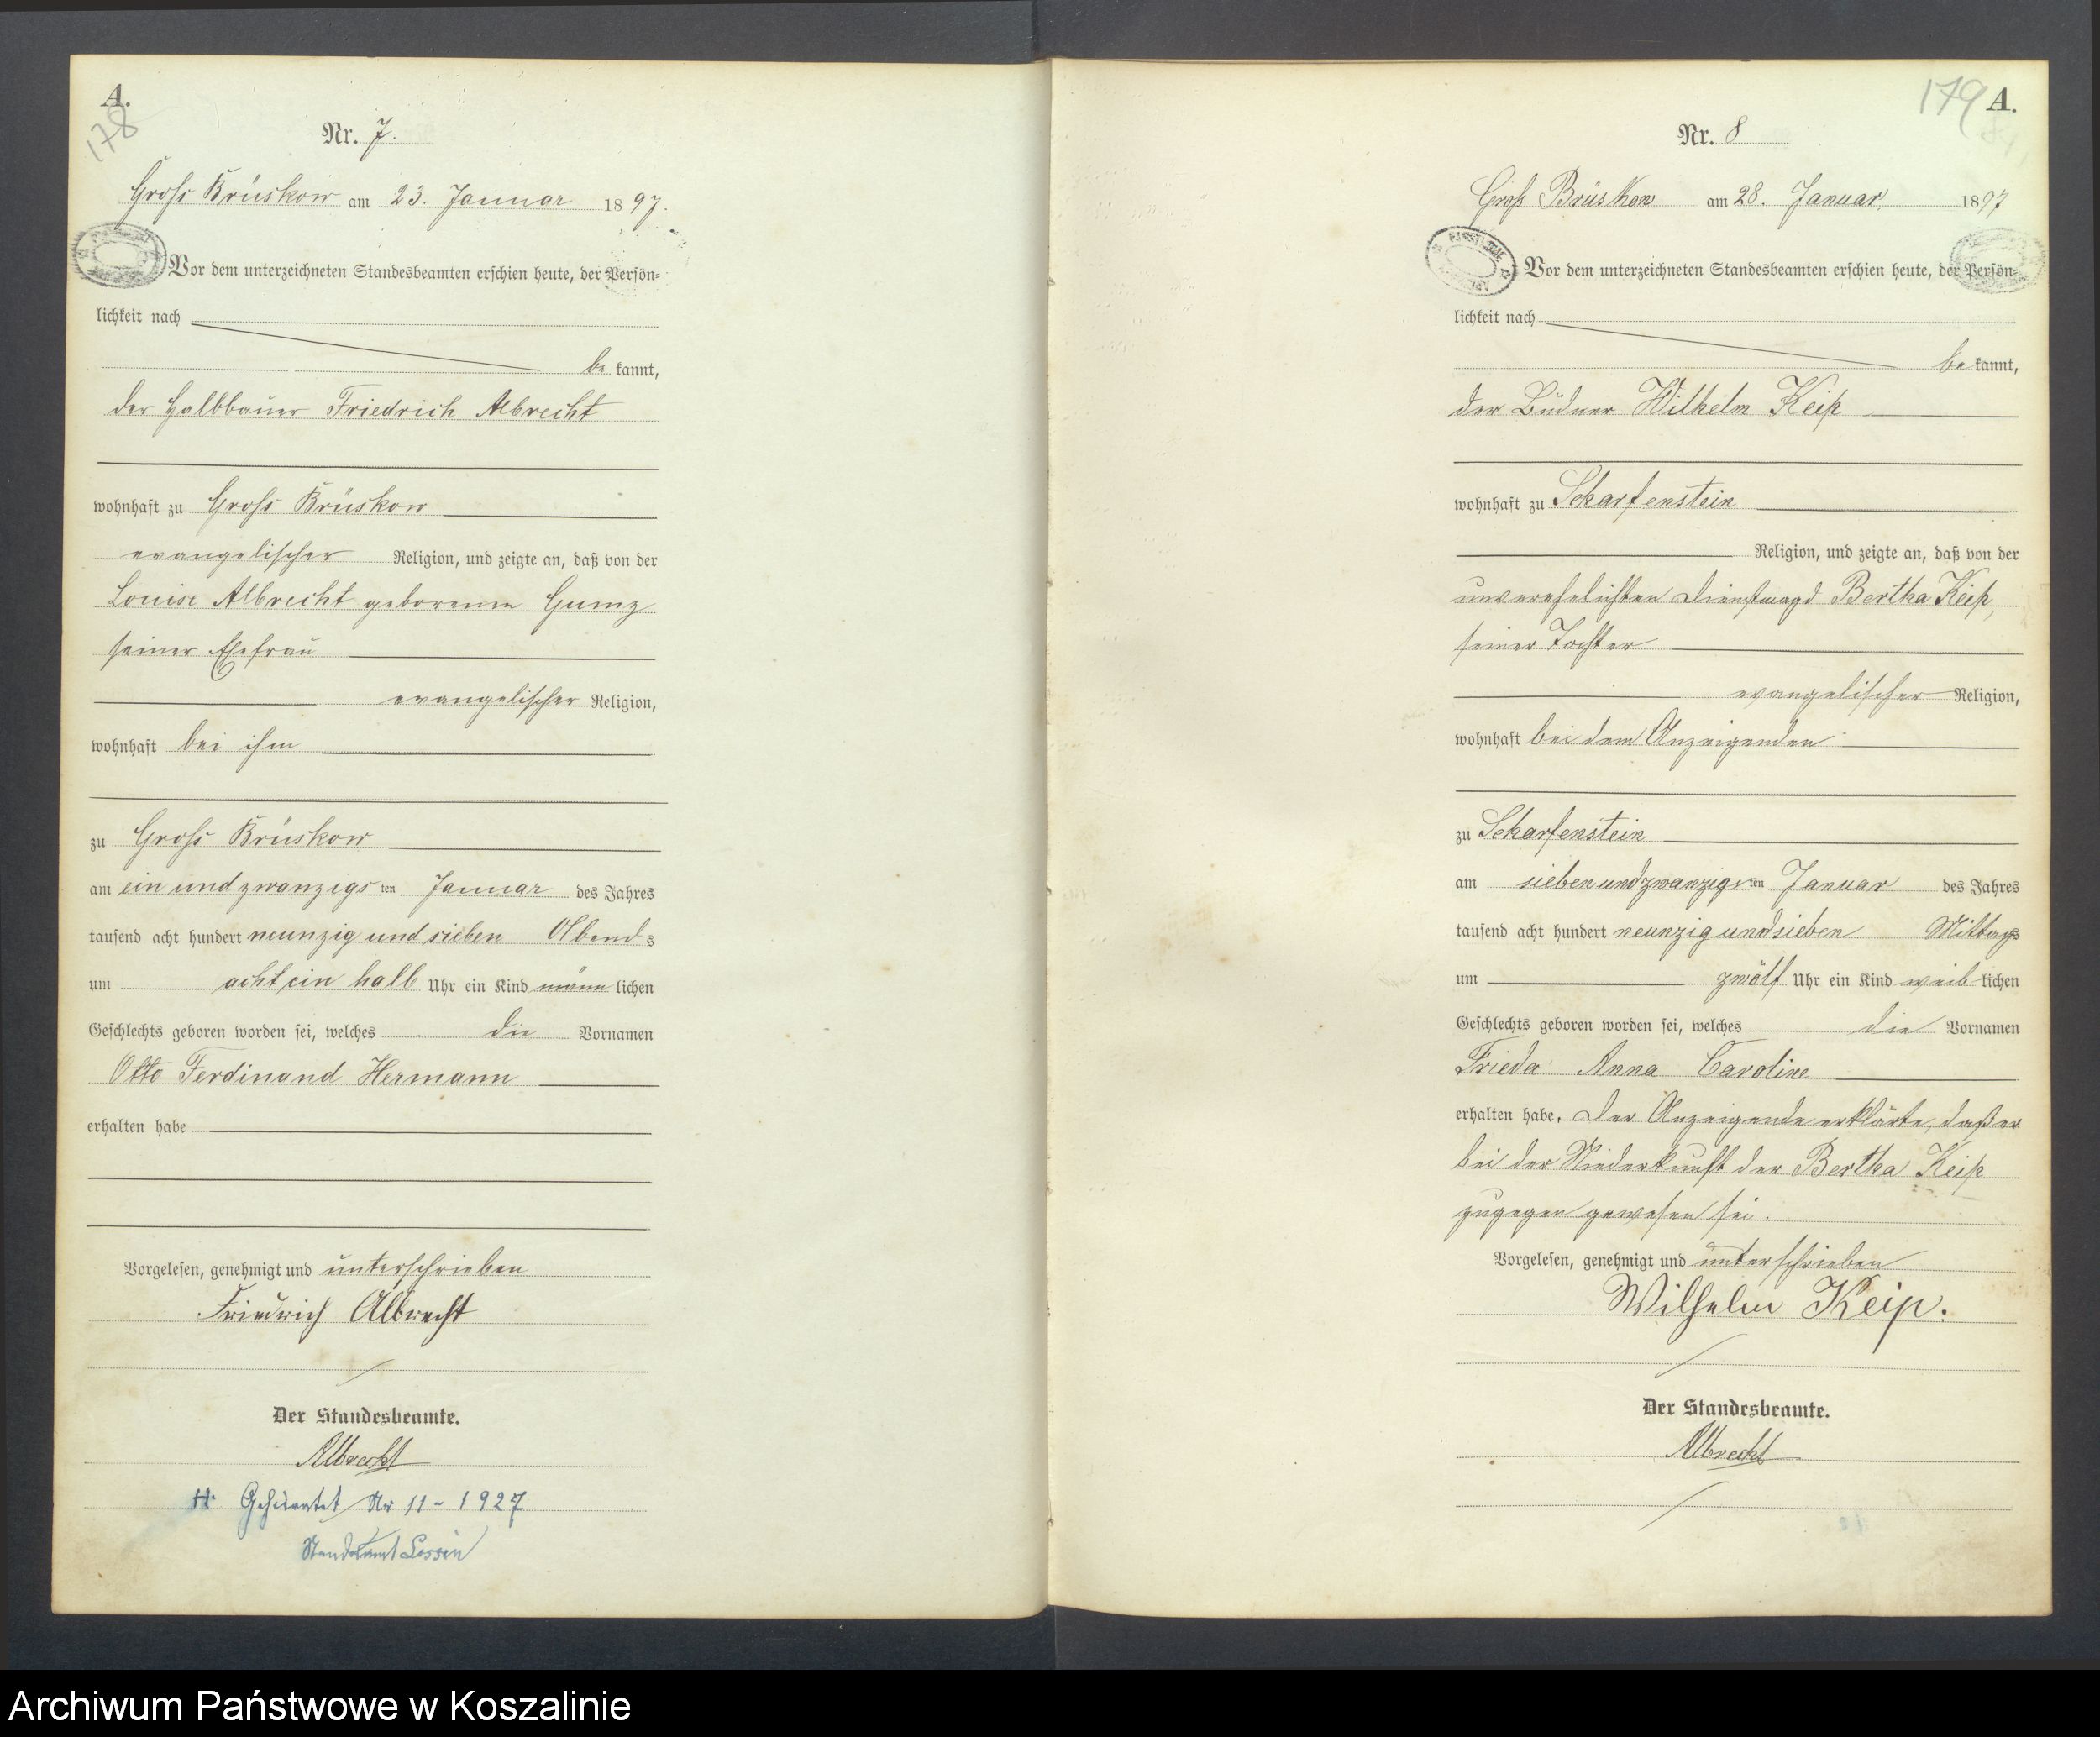 A.
178
Nr. 7.
Gross Brüskow am 23. Januar 1897.
Vor dem unterzeichneten Standesbeamten erschien heute, der Persön-
lichkeit nach
be kannt,
der Halbbauer Friedrich Albrecht
wohnhaft zu Gross Brüskow
evangelischer Religion, und zeigte an, daß von der
Louise Albrecht geborenen Gumz
seiner Ehefrau
evangelischer Religion,
wohnhaft bei ihm
zu Gross Brüskow
am ein und zwanzigs ten Januar des Jahres
tausend acht hundert neunzig und sieben Abend s
um acht ein halb Uhr ein Kind männ lichen
Geschlechts geboren worden sei, welches die Vornamen
Otto Ferdinand Hermann
erhalten habe
Vorgelesen, genehmigt und unterschrieben
Friedrich Albrecht
Der Standesbeamte.
Albrecht
H. Geheiratet Nr 11 - 1927
Standesamt Lossin
179 A.
Nr. 8
Gross Brüskow am 28. Januar 1897
Vor dem unterzeichneten Standesbeamten erschien heute, der Persön-
lichkeit nach
be kannt,
der Büdner Wilhelm Keip
wohnhaft zu Scharfenstein
Religion, und zeigte an, daß von der
unverehelichten Dienstmagd Bertha Keip,
seiner Tochter
evangelischer Religion,
wohnhaft bei dem Anzeigenden
zu Scharfenstein
am siebenundzwanzigs ten Januar des Jahres
tausend acht hundert neunzig und sieben Mittags
um zwölf Uhr ein Kind weib lichen
Geschlechts geboren worden sei, welches die Vornamen
Frieda Anna Caroline
erhalten habe. Der Anzeigende erklärte, daß er
bei der Niederkunft der Bertha Keip
zugegen gewesen sei.
Vorgelesen, genehmigt und unterschrieben
Wilhelm Keip.
Der Standesbeamte.
Albrecht
Archiwum Państwowe w Koszalinie